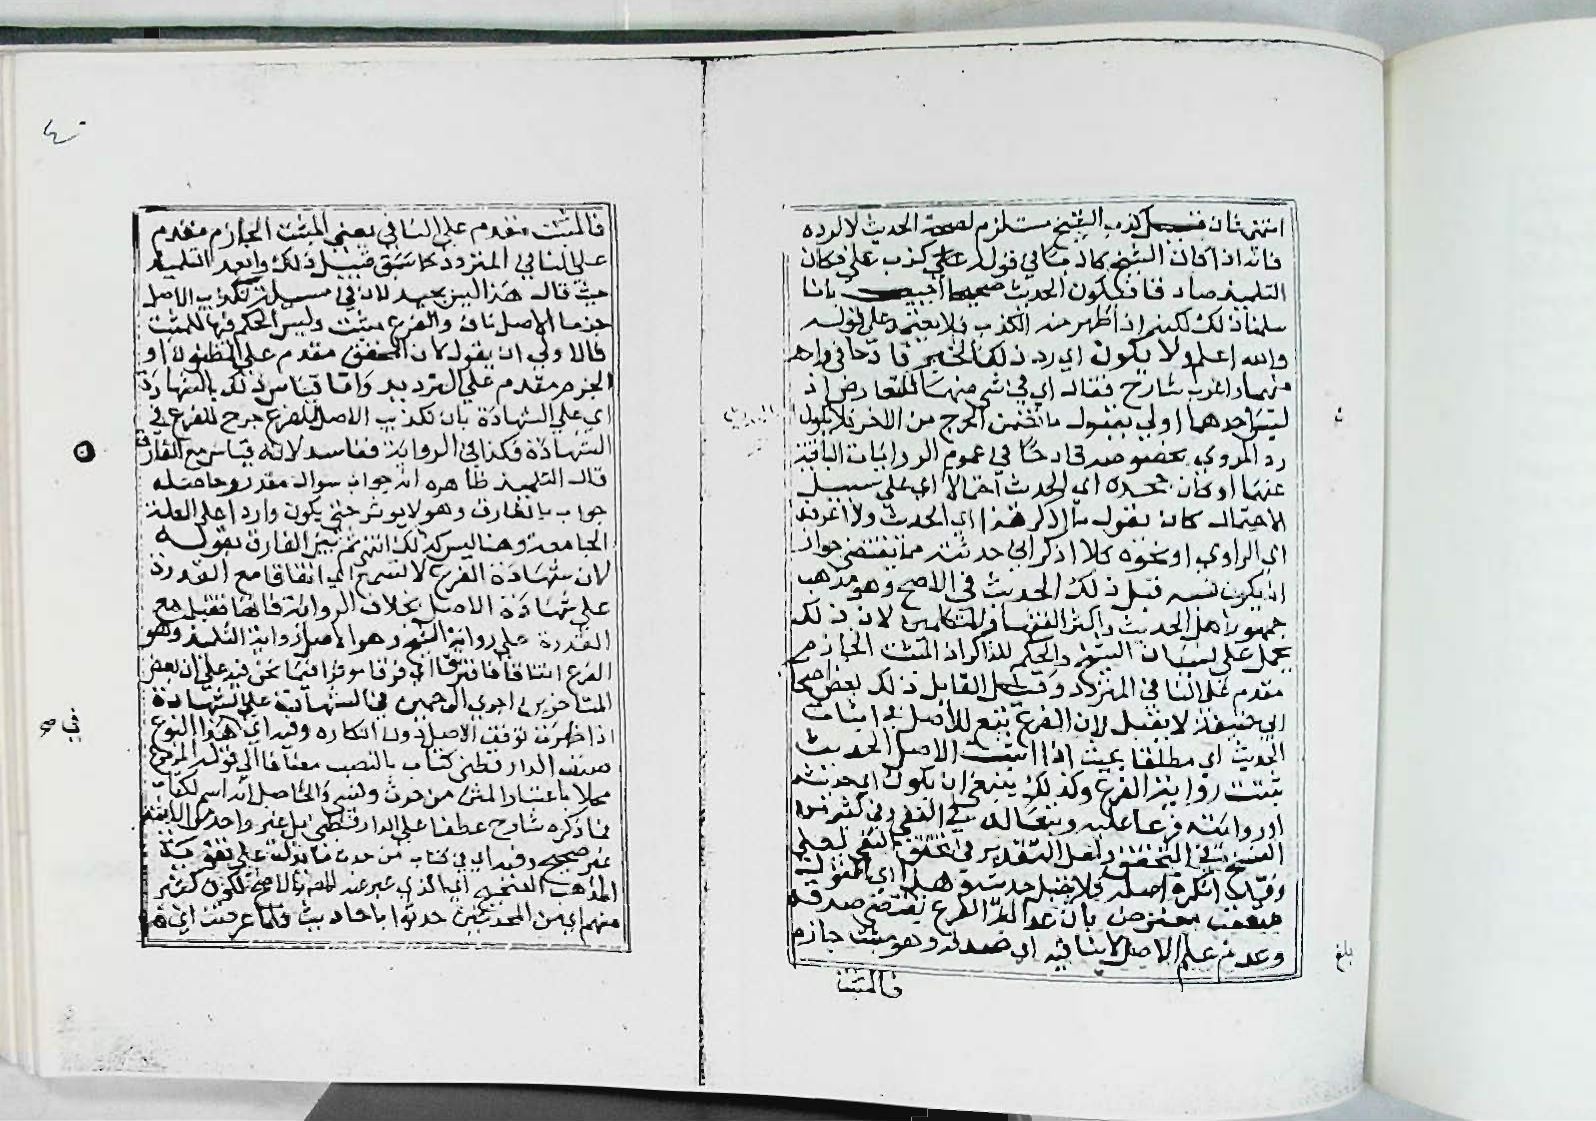 انتهى فان قيل كذب الشيخ مستلزم لصحة الحديث لا لرده
فانه اذا كان الشيخ كاذبا في قوله كذب علي فكان
التلميذ صادقا فيكون الحديث صحيحا اجيب بانا
سلمنا ذلك لكنه اذا ظهر منه الكذب فلا يعتمد على قوله
والله اعلم ولا يكون اي رد ذلك الخبر قادحا في واحد
منهما واغرب شارح فقال اي في شي منهما للتعارض اذ
ليس احدهما اولي بقبول ما تضمن الجرح من الاخر فلا يكون
رد المروي بعضه قادحا في عموم الروايات الباقية
عنهما او كان جحده اي الحديث احتمالا اي على سبيل
الاحتمال كان يقول ما اذكر هذا اي الحديث ولا اعرفه
اي الراوي او نحوه كلا اذكر اني حدثته مما يقتضي جواز
ان يكون نسيه قبل ذلك الحديث في الاصح وهو مذهب
جمهور اهل الحديث واكثر الفقها والمتكلمين لان ذلك
يحمل على نسيان الشيخ والحكم للذاكر اذ المثبت الجازم
مقدم على النافي المتردد وقيل القايل ذلك بعض اصحاب
ابي حنيفة لا يقبل لان الفرع تبع للاصل في اثبات
الحديث اي مطلقا بحيث اذا اثبت الاصل الحديث
ثبتت رواية الفرع وكذلك ينبغي ان يكون اي حديثه
او روايته فرعا عليه وتبعا له في النفي وفي كثير من
النسخ في التحقيق ولعل التقدير في تحقق النفي فعلى
انكره اصله فلا يقبل حديثه هذا اي القول
متعقب معترض بان عدالة الفرع يقتضي صدقه
وعدم علم الاصل لا ينافيه اي صدقه وهو مثبت جازم
فالمثبت
بلغ
فالمثبت مقدم على النافي يعني المثبت الجازم مقدم
على النافي المتردد كما سبق قبيل ذلك وابعد التلميذ
حيث قال هذا ليس بجيد لان في مسيلة تكذيب الاصل
جزما الاصل ناف والفرع مثبت وليس الحكم فيها للمثبت
فالاولى ان يقول لان المحقق مقدم على المظنون او
الجزم مقدم على الترديد واما قياس ذلك بالشهادة
اي على الشهادة بان تكذيب الاصل للفرع جرح للفرع في
الشهادة فكذا في الرواية ففاسد لانه قياس مع الفارق
قال التلميذ ظاهره انه جواب سوال مقدر وحاصله
جواب بالفارق وهو لا يوثر حتى يكون واردا على العلة
الجامعة وهنا ليس كذلك انتهى ثم بين الفارق بقوله
لان شهادة الفرع لا تسمع اي اتفاقا مع القدرة
على شهادة الاصل بخلاف الرواية فانها تقبل مع
القدرة على رواية الشيخ وهو الاصل رواية التلميذ وهو
الفرع اتفاقا فافترقا اي فرقا موثرا فيما نحن فيه على ان بعض
المتاخرين اجرى الوجهين في الشهادة على الشهادة
اذا ظهر فيه توقف الاصل دون انكاره وفيه اي هذا النوع
صنف الدارقطني كتاب بالنصب
محلا باعتبار المثنى من حدث ونسي والحاصل انه اسم لكتاب
فما ذكره شارح عطفا على الدارقطني بل غير واحد من الايمة
غير صحيح وفيه اي في كتاب من حدث ما يدل على تقوية
المذهب الصحيح اي الذي عبر عنه المص بالاصح لكون كثير
منهم اي من المحدثين حدثوا باحاديث فلما عرضت اي هي